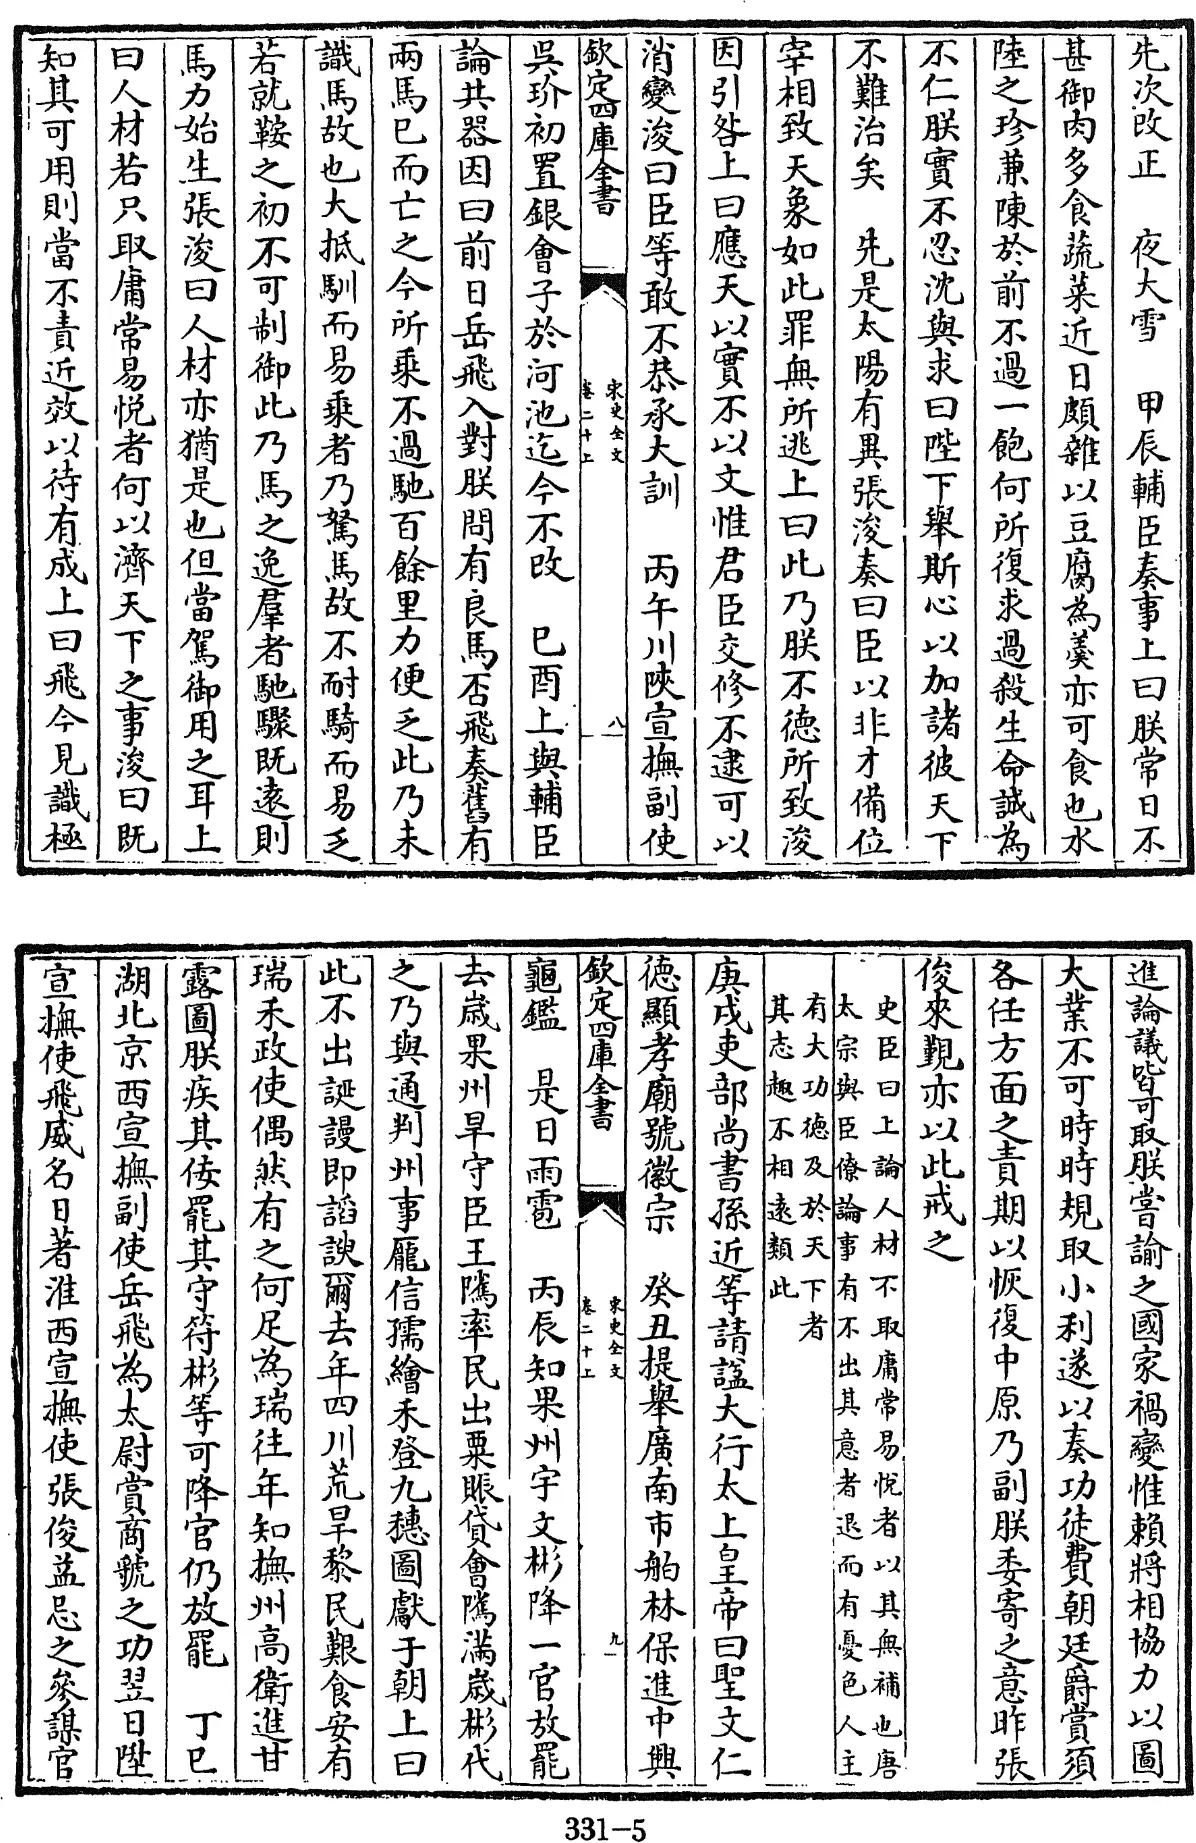 先次改正　夜大雪　甲辰輔臣奏事上曰朕常日不
甚御肉多食蔬菜近日頗雜以豆腐為羮亦可食也水
陸之珍兼陳於前不過一飽何所復求過殺生命誠為
不仁朕實不忍沈與求曰陛下舉斯心以加諸彼天下
不難治矣　先是太陽有異張浚奏曰臣以非才備位
宰相致天象如此罪無所逃上曰此乃朕不德所致浚
因引咎上曰應天以實不以文惟君臣交修不逮可以
消變浚曰臣等敢不恭承大訓　丙午川陜宣撫副使
欽定四庫全書
宋史全文
卷二十上
八
吳玠初置銀會子於河池迄今不改　已酉上與輔臣
論共器因曰前日岳飛入對朕問有良馬否飛奏舊有
兩馬已而亡之今所乘不過馳百餘里力便乏此乃未
識馬故也大抵馴而易乘者乃駑馬故不耐騎而易乏
若就鞍之初不可制御此乃馬之逸羣者馳驟既遠則
馬力始生張浚曰人材亦猶是也但當駕御用之耳上
曰人材若只取庸常易悦者何以濟天下之事浚曰既
知其可用則當不責近效以待有成上曰飛今見識極
進論議皆可取朕嘗諭之國家禍變惟賴將相協力以圖
大業不可時時規取小利遂以奏功徒費朝廷爵賞須
各任方面之責期以恢復中原乃副朕委寄之意昨張
俊來覲亦以此戒之
史臣曰上論人材不取庸常易悦者以其無補也唐
太宗與臣僚論事有不出其意者退而有憂色人主
有大功徳及於天下者
其志趣不相遠類此
庚戌吏部尚書孫近等請諡大行太上皇帝曰聖文仁
德顯孝廟號徽宗　癸丑提舉廣南市舶林保進中興
欽定四庫全書
宋史全文
卷二十上
九
龜鑑　是日雨雹　丙辰知果州宇文彬降一官放罷
去歲果州旱守臣王隲率民出粟賑貸會隲滿歲彬代
之乃與通判州事龎信孺繪禾登九穗圖獻于朝上曰
此不出誕謾即謟諛爾去年四川荒旱黎民艱食安有
瑞禾政使偶然有之何足為瑞往年知撫州高衛進甘
露圖朕疾其佞罷其守符彬等可降官仍放罷　丁巳
湖北京西宣撫副使岳飛為太尉賞商虢之功翌日陞
宣撫使飛威名日著淮西宣撫使張俊益忌之參謀官
331-5